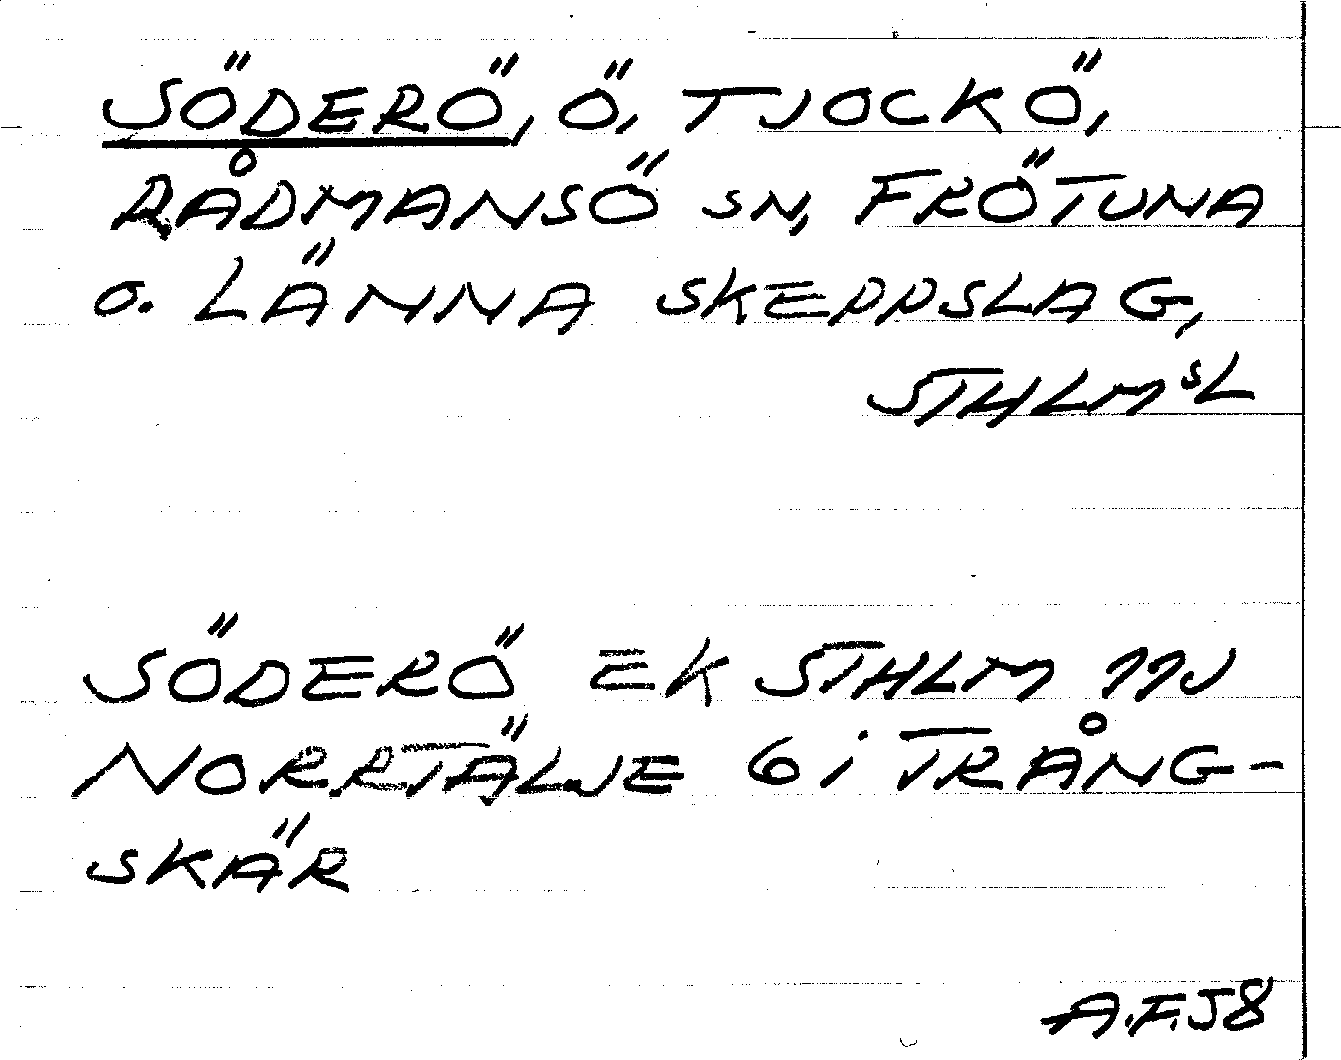 SÖDERÖ, Ö, TJOCKÖ,
RÅDMANSÖ SN, FRÖTUNA
O. LÄNNA SKEPPSLAG,
STHLMSL
SÖDERÖ EK STHLM 11J
NORRTÄLJE 6 i TRÅNG-
SKÄR
A.F.58